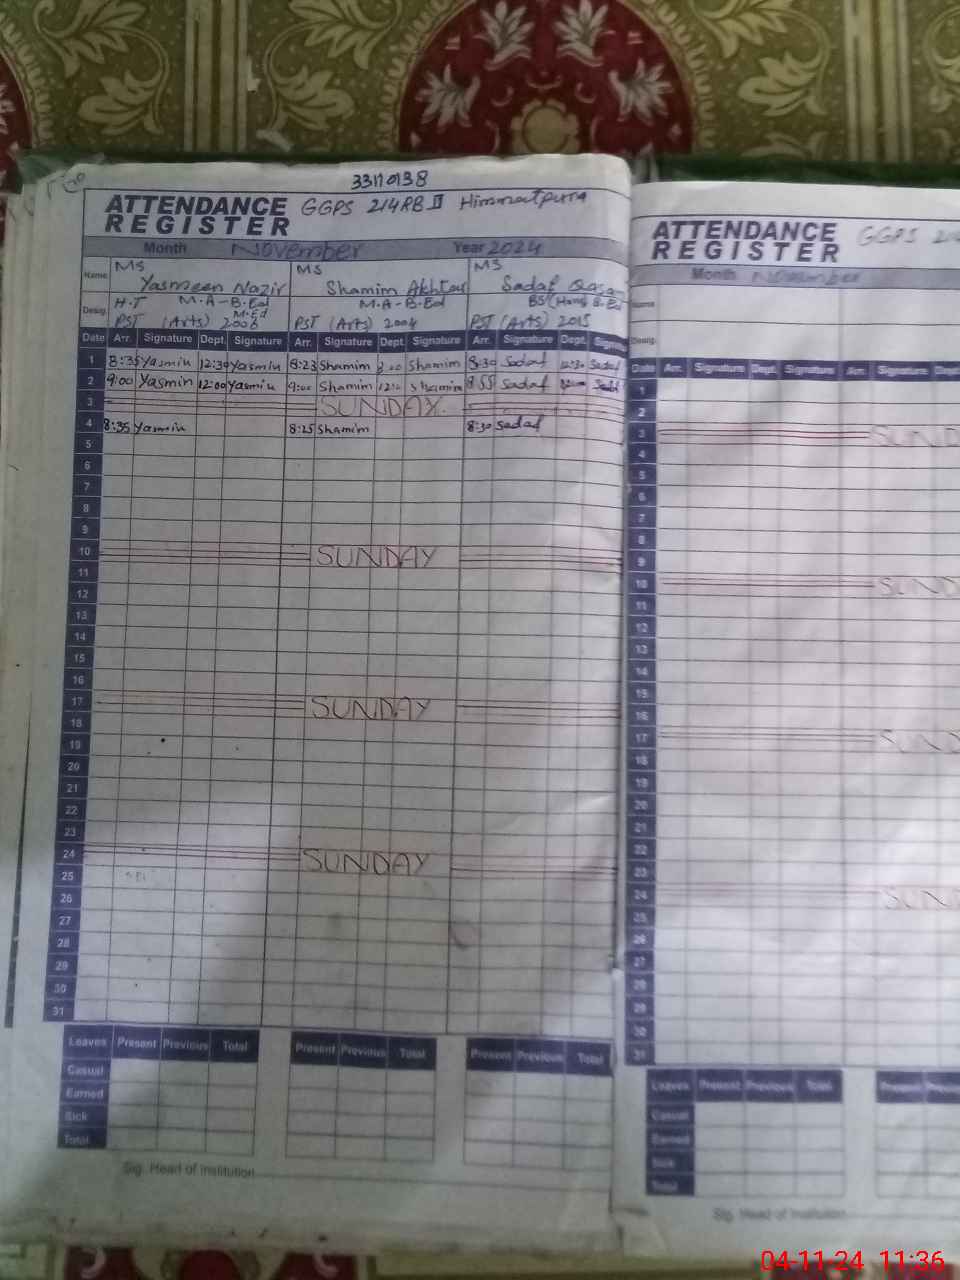 33110138
ATTENDANCE REGISTER GGPS 214RB II Himmatpura
Month November Year 2024
Name MS Yasmeen Nazir MS Shamim Akhtar MS Sadaf
Desig. H.T M.A-B.Ed M.Ed M.A-B.Ed BS(Hons) B.Ed
PST (Arts) 2006 PST (Arts) 2004 PST (Arts) 2015
Date Arr. Signature Dept. Signature Arr. Signature Dept. Signature Arr. Signature Dept. Signature
1 8:35 Yasmin 12:30 Yasmin 8:23 Shamim Shamim 8:30 Sadaf 12:30 Sadaf
2 9:00 Yasmin 12:00 Yasmin 9:00 Shamim Shamim 8:55 Sadaf Sadaf
3 SUNDAY
4 8:35 Yasmin 8:25 Shamim 8:30 Sadaf
5
6
7
8
9
10 SUNDAY
11
12
13
14
15
16
17 SUNDAY
18
19
20
21
22
23
24 SUNDAY
25
26
27
28
29
30
31
Leaves Present Previous Total Present Previous Total Present Previous Total
Casual
Earned
Sick
Total
Sig. Head of Institution
ATTENDANCE REGISTER GGPS
Month November
Name
Desig.
Date Arr. Signature Dept. Signature Arr. Signature
1
2
3 SUND
4
5
6
7
8
9
10 SUND
11
12
13
14
15
16
17 SUND
18
19
20
21
22
23
24 SUND
25
26
27
28
29
30
31
Leaves Present Previous Total Present
Casual
Earned
Sick
Total
Sig. Head of Institution
04-11-24 11:36